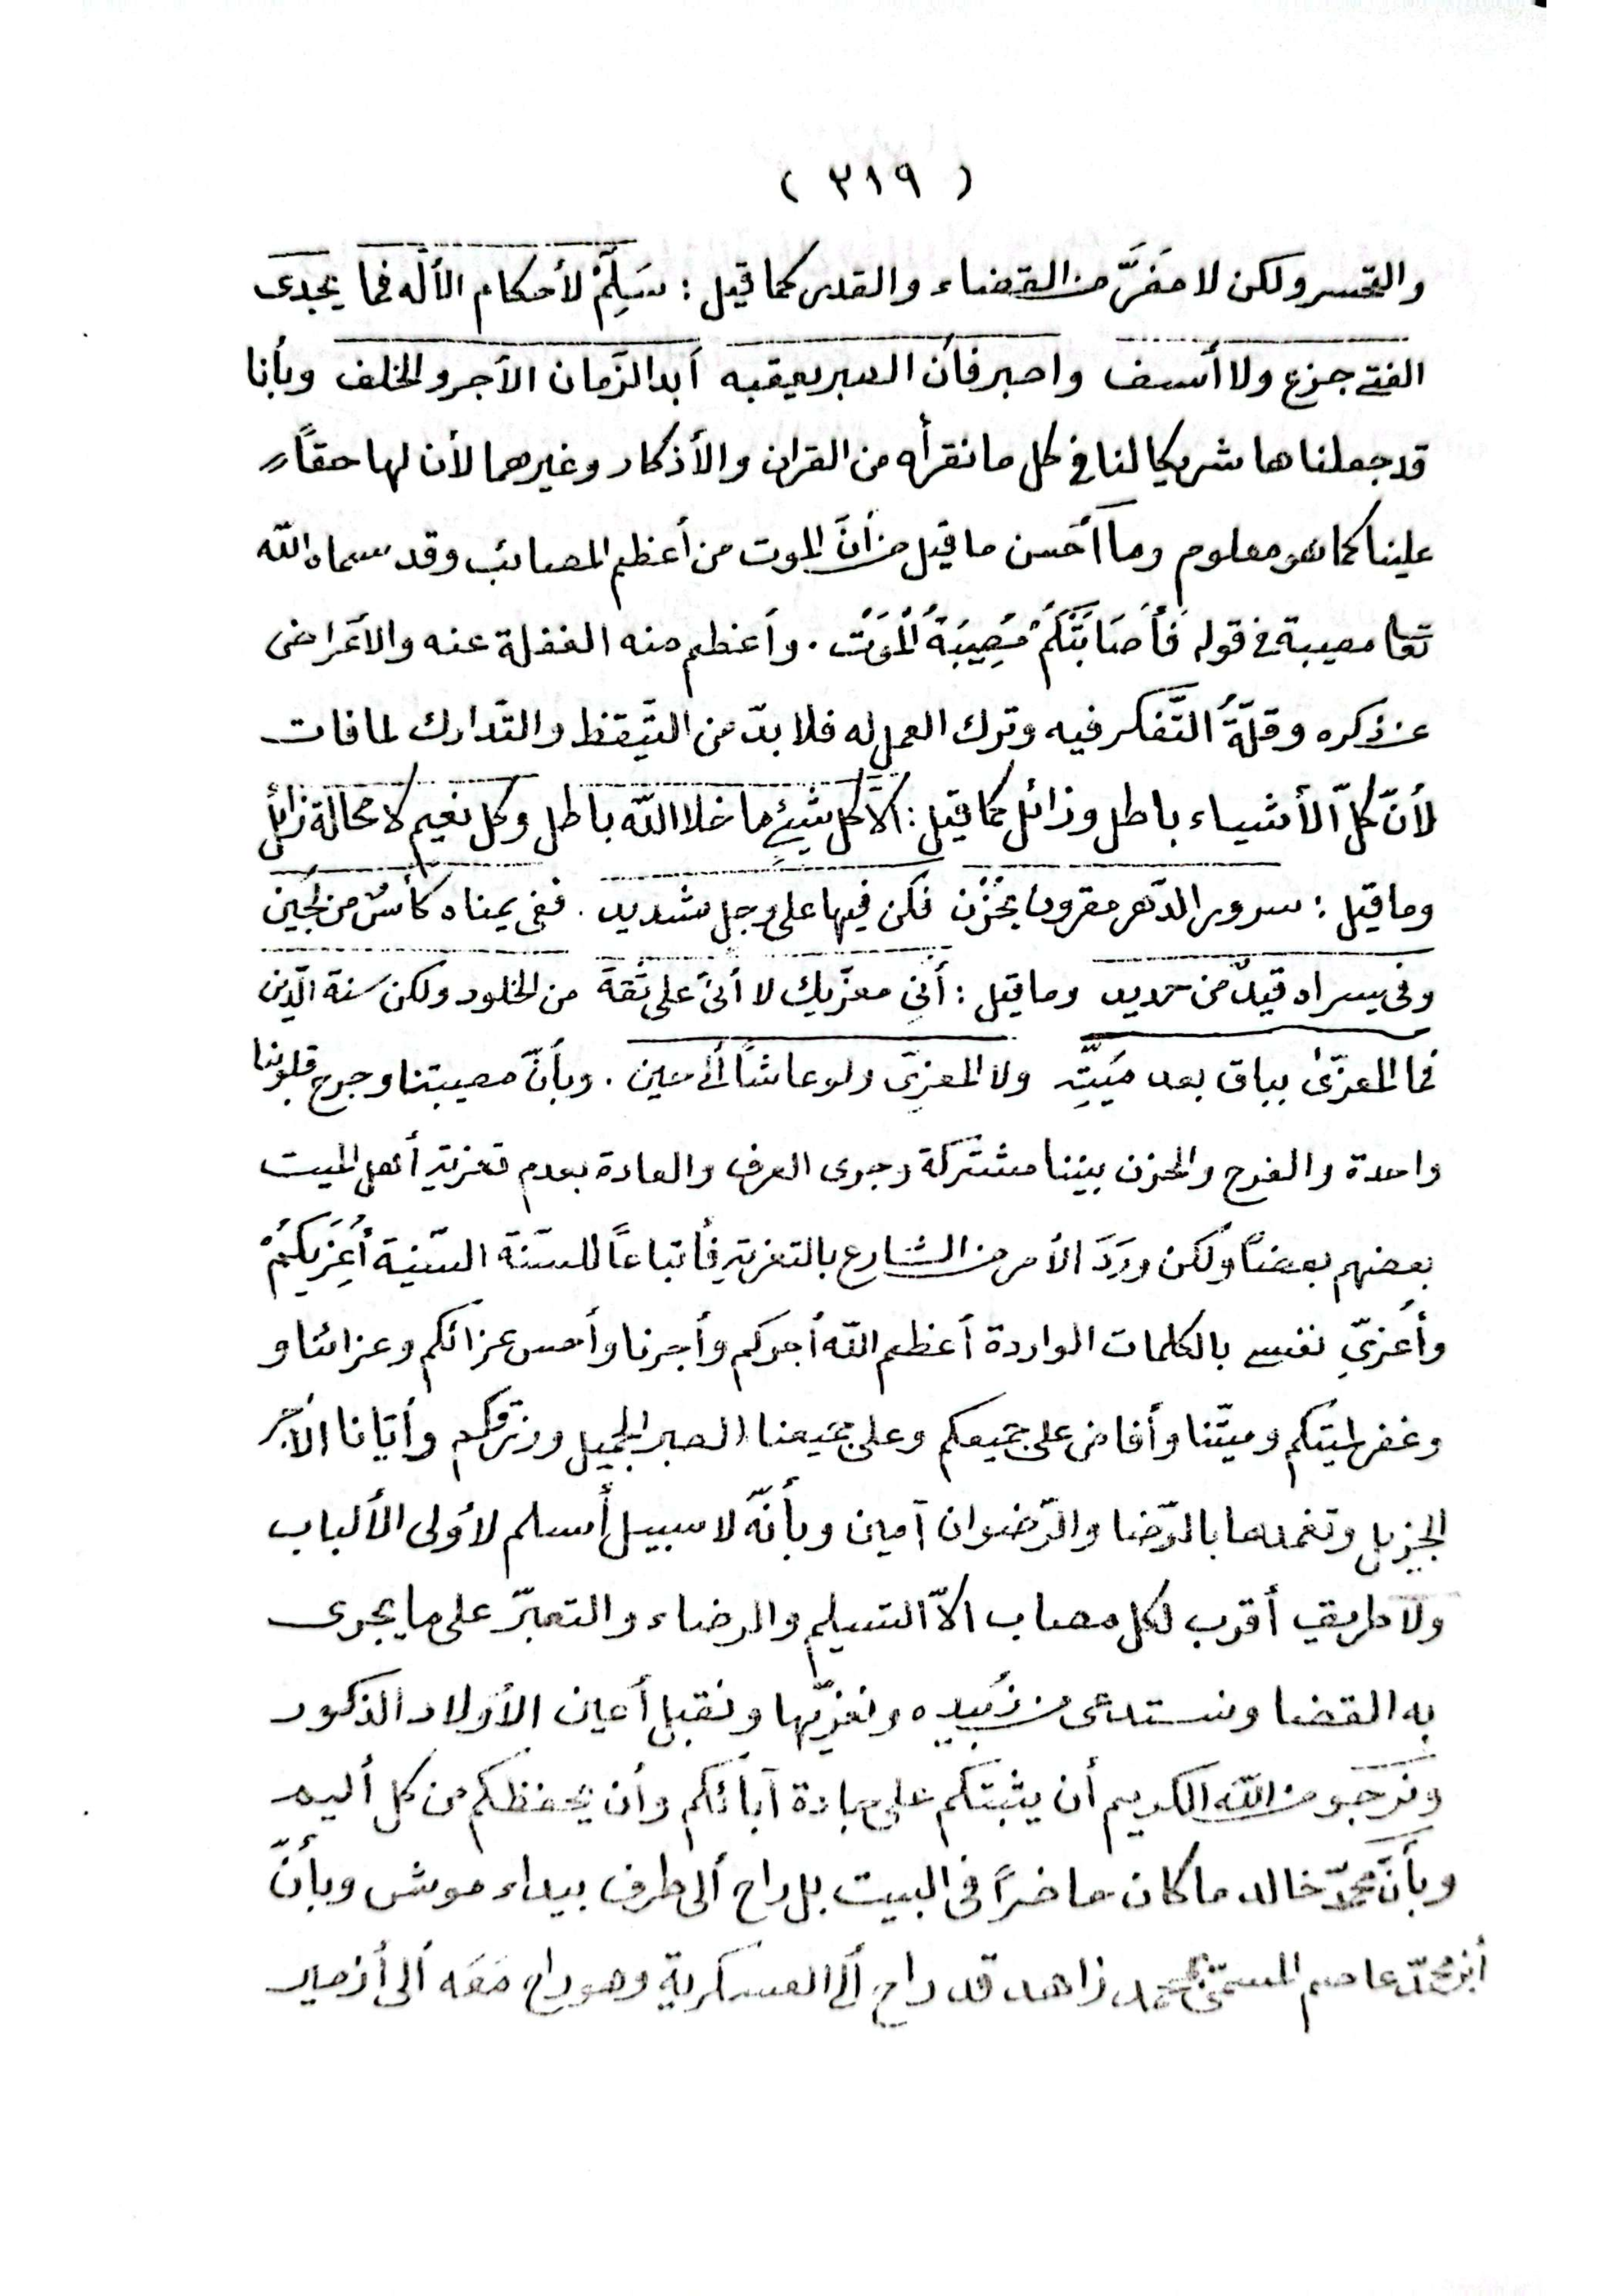 ( ٣١٩ )
والتحسر ولكن لا مَفَرَّ من القضاء والقدر كما قيل : سَلِّمْ لأحكام الألٰه فما يجدى
الفتى جزع ولا أسف واصبر فأن الصبر يعقبه أبد الزّمان الأجر والخلف وبأنا
قد جعلناها شريكا لنا في كل ما نقرأه من القران والأذكار وغيرهما لأن لها حقاً
علينا كما هو معلوم وما أحسن ما قيل من أنَّ الموت من أعظم المصائب وقد سماه اللّه
تعا مصيبة في قوله فَأَصَابَتْكُمْ مُصِيبَةُ الْمَوْتِ . وأعظم منه الغفلة عنه والأعراض
عن ذكره وقلّةُ التّفكر فيه وترك العمل له فلا بدّ من التّيقظ والتّدارك لما فات
لأنّ كلّ الأشياء باطل وزائل كما قيل : ألا كل شيئ ما خلا اللّه باطل وكل نعيم لا محالة زائل
وما قيل : سرور الدّهر مقرون بحُزْن فكن فيها على وجل شديد . ففى يمناه كأسٌ من لُجَين
وفى يسراه قيدٌ من حديد وما قيل : أنّي معزّيك لا أنّى على ثقة من الخلود ولكن سنة الّدين
فما المعزّىٰ بباق بعد مَيّتِه ولا المعزّى ولو عاشا ألى حين . وبأنّ مصيبتنا وجرح قلوبنا
واحدة والفرح والحزن بيننا مشتركة وجرى العرف والعادة بعدم تعزية أهل الميت
بعضهم بعضاً ولكن ورَدَ الأمر من الشارع بالتعزية فأتباعاً للسّنّة السّنية أُعَزِّيكُمْ
وأُعزّي نفسى بالكلمات الواردة أعظم اللّه أجركم وأجرنا وأحسن عزائكم وعزائنا و
وغفر لميتكم وميّتنا وأفاض على جميعكم وعلى جميعنا الصبر الجميل ورزقكم وأيّانا الأجر
الجزيل وتغمدها بالرّضا والرّضوان آمين وبأنّه لا سبيل أسلم لأولى الألباب
ولا طريق أقرب لكل مصاب الاّ التسليم والرضاء والتصبّر على ما يجرى
به القضا ونستدعى من زُبيده ونعزّيها ونقبل أعين الأولاد الذكور
ونرجو من اللّه الكريم أن يثبتكم على جادة آبائكم وأن يحفظكم من كل أليم
وبأنّ محمّد خالد ما كان حاضراً فى البيت بل راح ألى طرف بيداء موش وبأنّ
أبن محمّد عاصم المسمّى محمد زاهد قد راح ألى العسكرية وهو راح مَعَه ألى أزمير